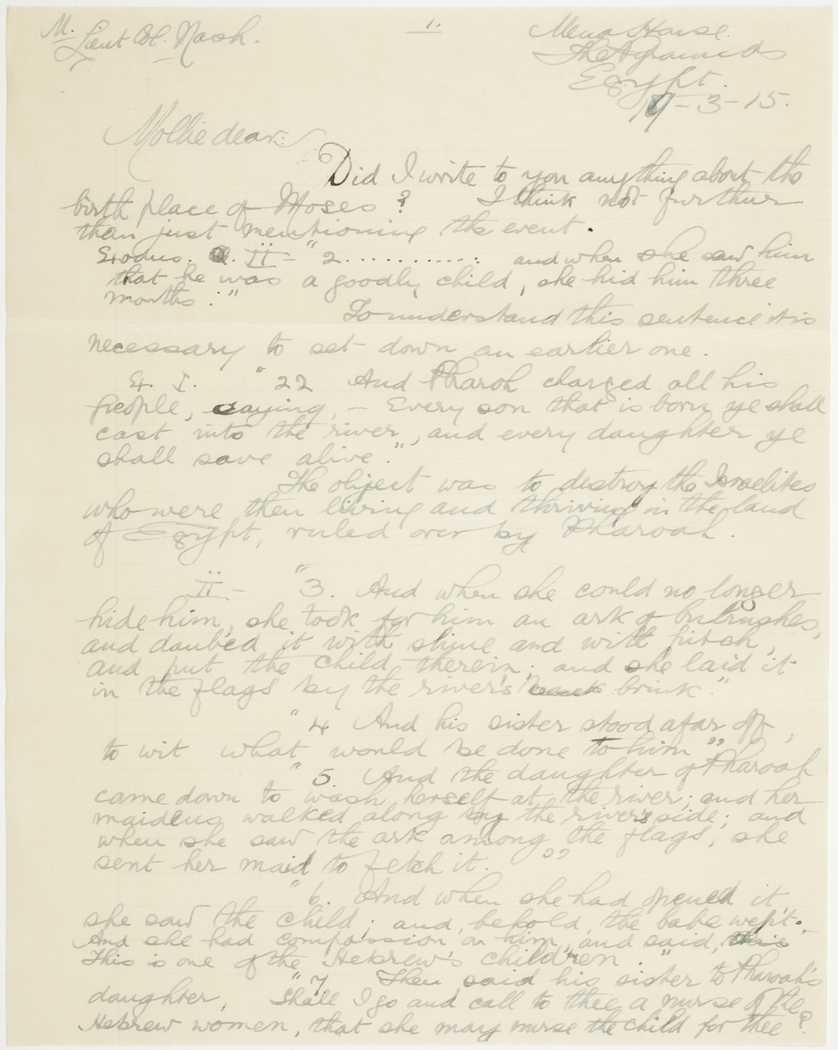 M. Lieut Col. Nash.
1.
Mena House.
The Pyramids
Egypt.
17-3-15.
Mollie dear:
Did I write to you anything about the
birth place of Moses? I think not further
than just mentioning the event.
Exodus. II - "2........... and when she saw him
that he was a goodly child, she hid him three
months."
To understand this sentence it is
necessary to set down an earlier one.
Ex I. "22 And Pharoh charged all his
people, saying, - Every son that is born ye shall
cast into the river, and every daughter ye
shall save alive."
The object was to destroy the Israelites
who were then living and thriving in the land
of Egypt, ruled over by Pharoah.
II - "3. And when she could no longer
hide him, she took for him an ark of bulrushes,
and daubed it with slime and with pitch,
and put the child therein; and she laid it
in the flags by the river's brink."
"4 And his sister stood afar off,
to wit what would be done to him"
"5 And the daughter of Pharoah
came down to wash herself at the river; and her
maidens walked along by the river's side; and
when she saw the ark among the flags, she
sent her maid to fetch it."
"6. And when she had opened it
she saw the child; and, behold, the babe wept.
And she had compassion on him, and said, this
This is one of the Hebrew's children."
"7 Then said his sister to Pharoah's
daughter, "Shall I go and call to thee a nurse of the
Hebrew women, that she may nurse the child for thee?